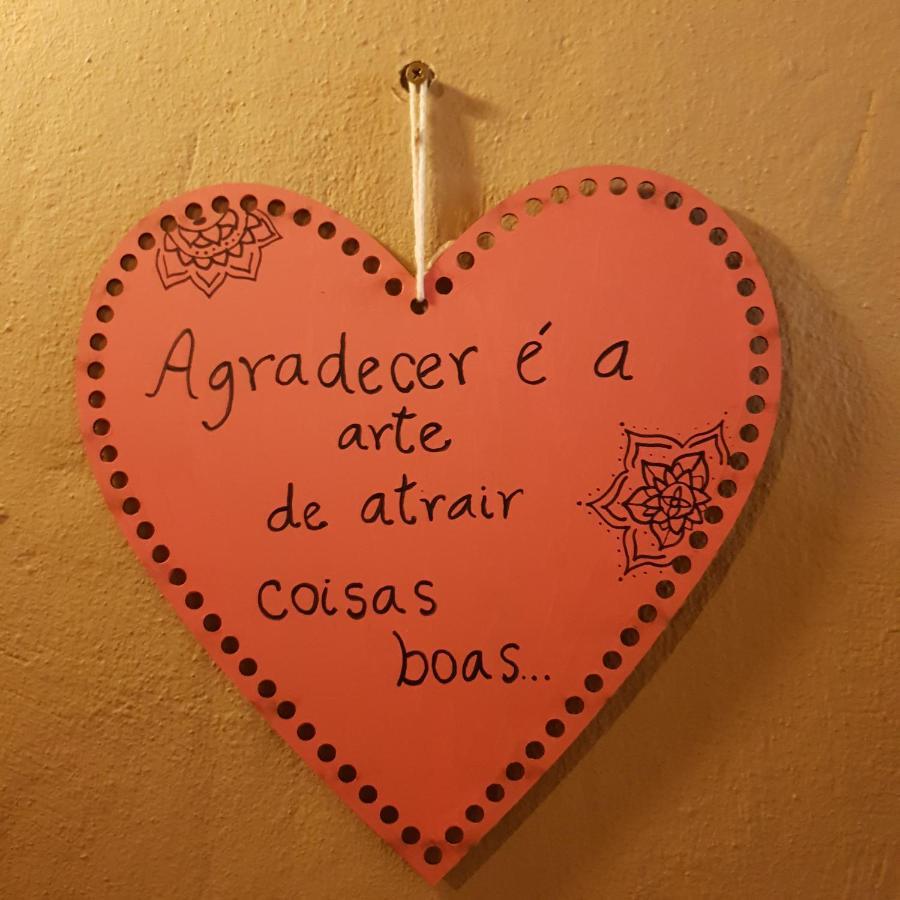 Agradecer é a
arte
de atrair
coisas
boas...